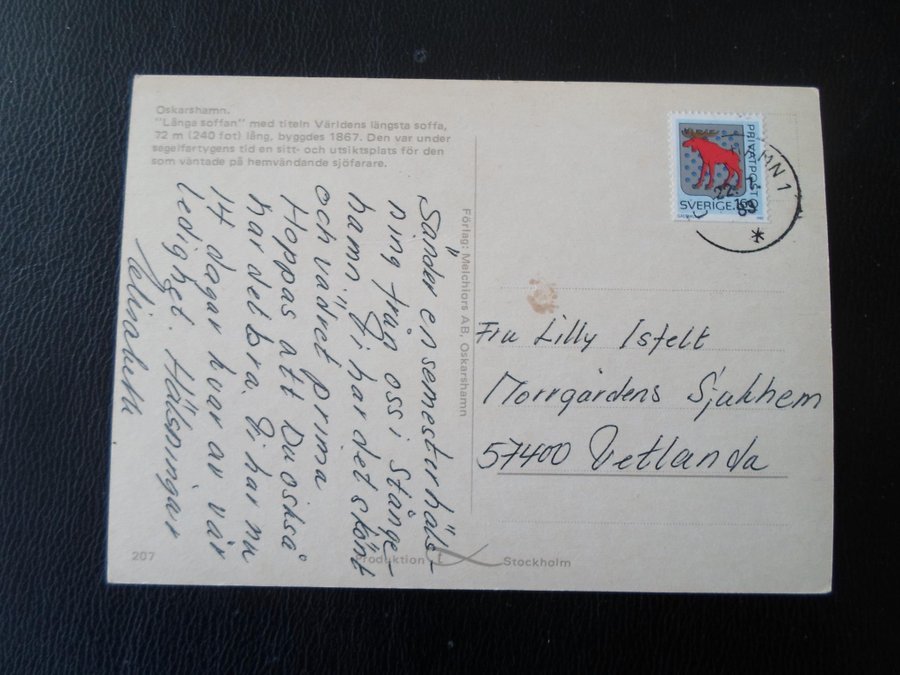 Oskarshamn.
"Långa soffan" med titeln Världens längsta soffa,
72 m (240 fot) lång, byggdes 1867. Den var under
segelfartygens tid en sitt- och utsiktsplats för den
som väntade på hemvändande sjöfarare.
Sänder en semesterhäls-
ning från oss i Stånge-
hamn. Vi har det skönt
och vädret prima
Hoppas att Du också
har det bra. Vi har nu
14 dagar kvar av vår
ledighet. Hälsningar
Förlag: Melchiors AB, Oskarshamn
PRIVATPOST
SVERIGE 160
HAMN 1
22. 7.
83
Fru Lilly Isfelt
Morrgårdens Sjukhem
57400 Vetlanda
207
Produktion Stockholm